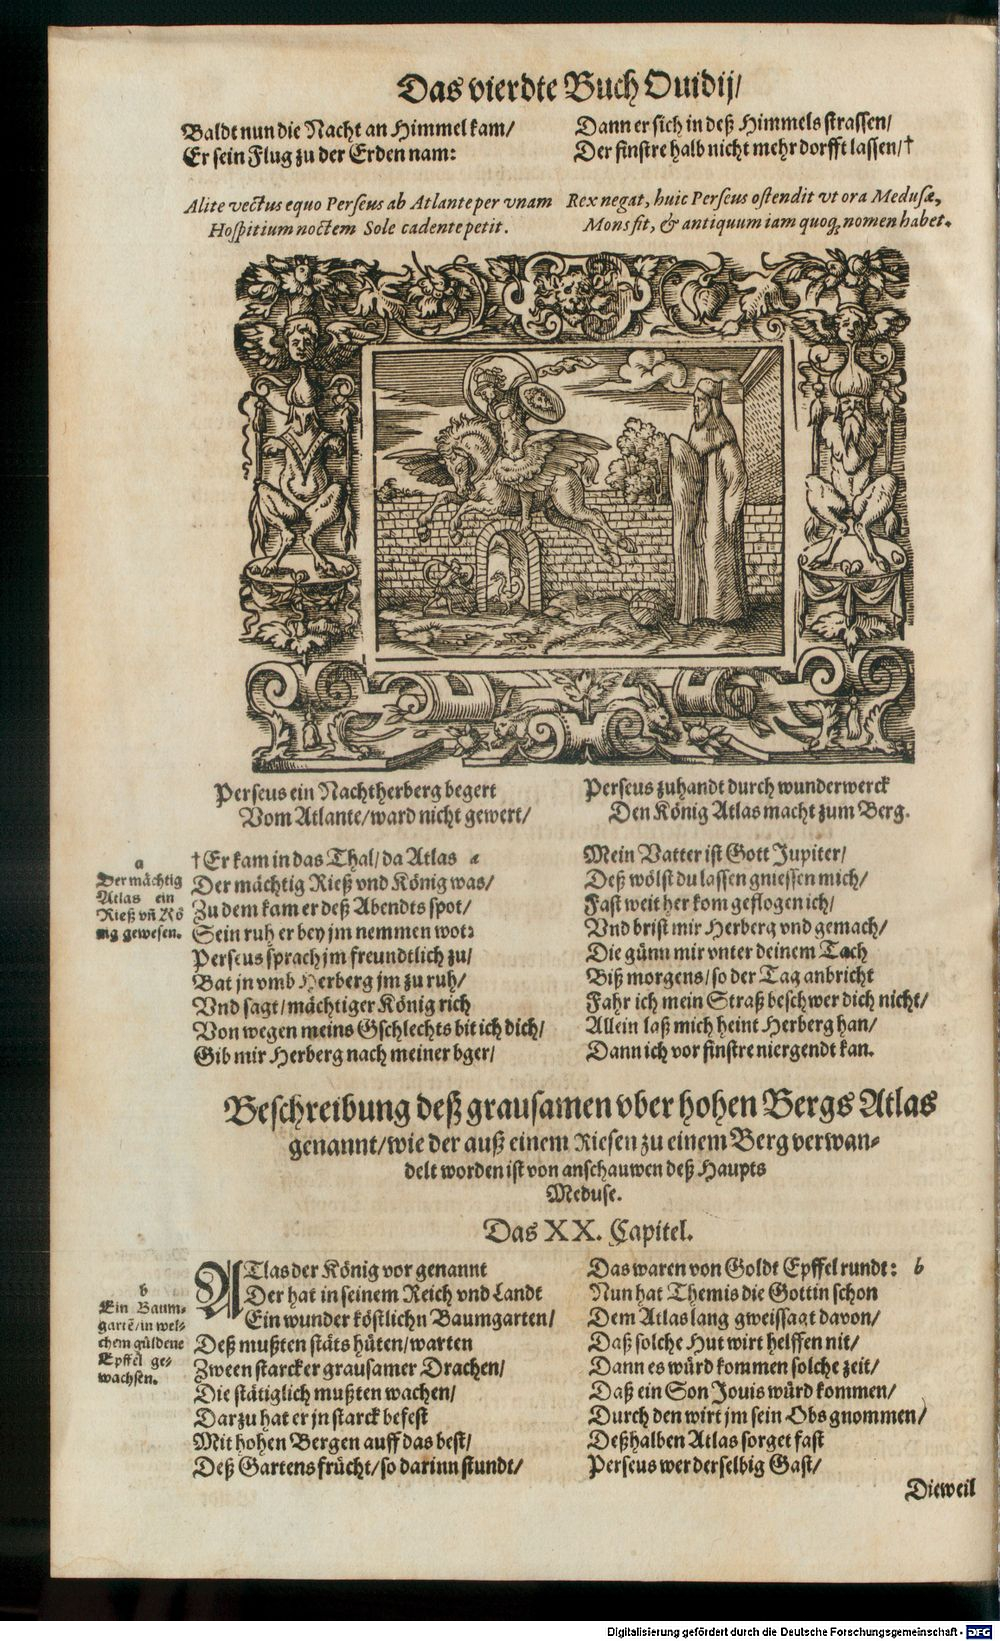 Das vierdte Buch Ouidij/
Baldt nun die Nacht an Himmel kam/
Er sein Flug zu der Erden nam:
Dann er sich in deß Himmels strassen/
Der finstre halb nicht mehr dorfft lassen/†
Alite vectus equo Perseus ab Atlante per vnam
Hospitium noctem Sole cadente petit.
Rex negat, huic Perseus ostendit vt ora Medusæ,
Mons fit, & antiquum iam quoq; nomen habet.
Perseus ein Nachtherberg begert
Vom Atlante/ward nicht gewert/
Perseus zuhandt durch wunderwerck
Den König Atlas macht zum Berg.
a
Der mächtig
Atlas ein
Rieß vñ Kö
nig gewesen.
†Er kam in das Thal/da Atlas a
Der mächtig Rieß vnd König was/
Zu dem kam er deß Abendts spot/
Sein ruh er bey jm nemmen wot:
Perseus sprach jm freundtlich zu/
Bat jn vmb Herberg jm zu ruh/
Vnd sagt/mächtiger König rich
Von wegen meins Gschlechts bit ich dich/
Gib mir Herberg nach meiner bger/
Mein Vatter ist Gott Jupiter/
Deß wölst du lassen gniessen mich/
Fast weit her kom geflogen ich/
Vnd brist mir Herberg vnd gemach/
Die günn mir vnter deinem Tach
Biß morgens/so der Tag anbricht
Fahr ich mein Straß beschwer dich nicht/
Allein laß mich heint Herberg han/
Dann ich vor finstre niergendt kan.
Beschreibung deß grausamen vber hohen Bergs Atlas
genannt/wie der auß einem Riesen zu einem Berg verwan-
delt worden ist von anschauwen deß Haupts
Meduse.
Das XX. Capitel.
b
Ein Baum-
gartē/in wel-
chem güldene
Epffel ge-
wachsen.
ATlas der König vor genannt
Der hat in seinem Reich vnd Landt
Ein wunder köstlichn Baumgarten/
Deß mußten stäts hüten/warten
Zween starcker grausamer Drachen/
Die stätiglich mußten wachen/
Darzu hat er jn starck befest
Mit hohen Bergen auff das best/
Deß Gartens frücht/so darinn stundt/
Das waren von Goldt Epffel rundt: b
Nun hat Themis die Gottin schon
Dem Atlas lang gweissagt davon/
Daß solche Hut wirt helffen nit/
Dann es würd kommen solche zeit/
Daß ein Son Jouis würd kommen/
Durch den wirt jm sein Obs gnommen/
Deßhalben Atlas sorget fast
Perseus wer derselbig Gast/
Dieweil
Digitalisierung gefördert durch die Deutsche Forschungsgemeinschaft - DFG